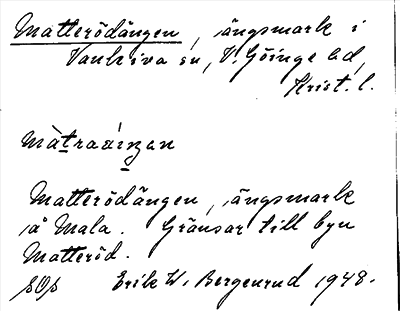 Matterödängen, ängsmark i
Vankiva sn, V. Göinge hd,
Krist. l.
Matterödängen, ängsmark
å Mala. Gränsar till byn
Matteröd.
Erik W. Bergenrud 1948.